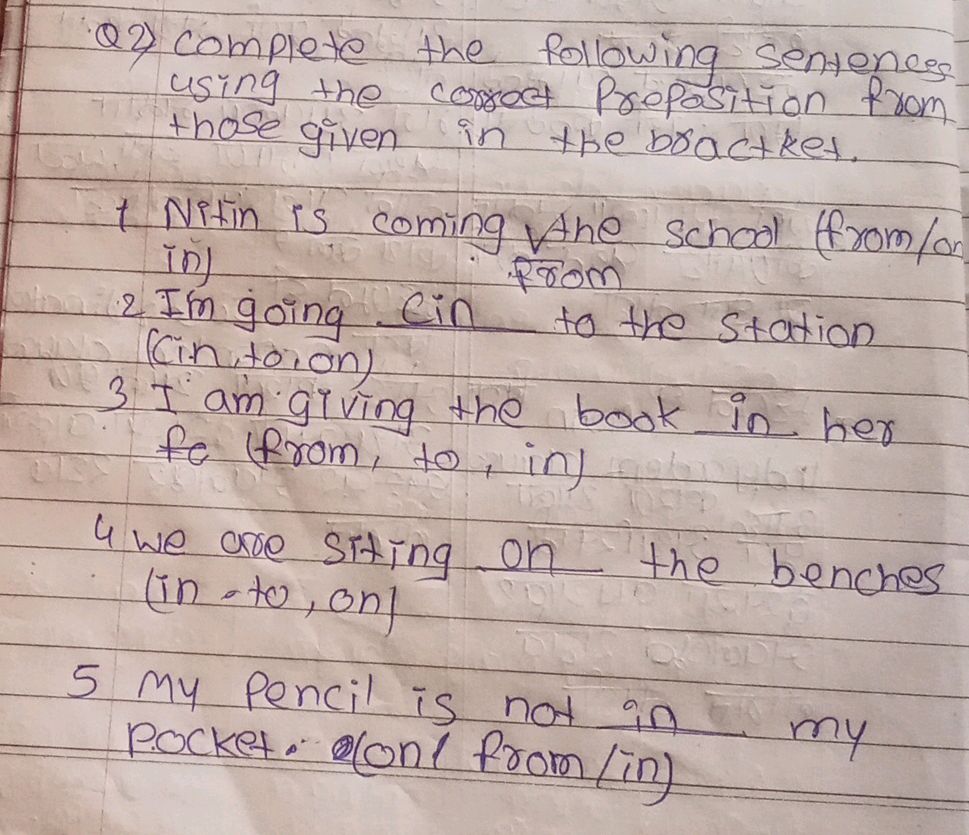 Q2) complete the following sentences
using the correct Preposition from
those given in the bractket.
1 Nitin is coming the school (from/on
in) from
2 I'm going Cin to the station
(Cin, to, on)
3 I am giving the book in her
(from, to, in)
4 we are sitting on the benches
(in - to, on)
5 my pencil is not in my
pocket. (on/ from/in)